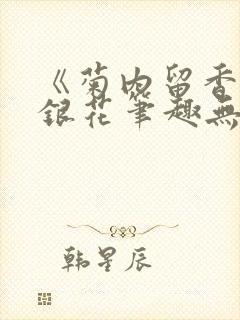 《菊内留香
銀花筆趣無
韩星辰